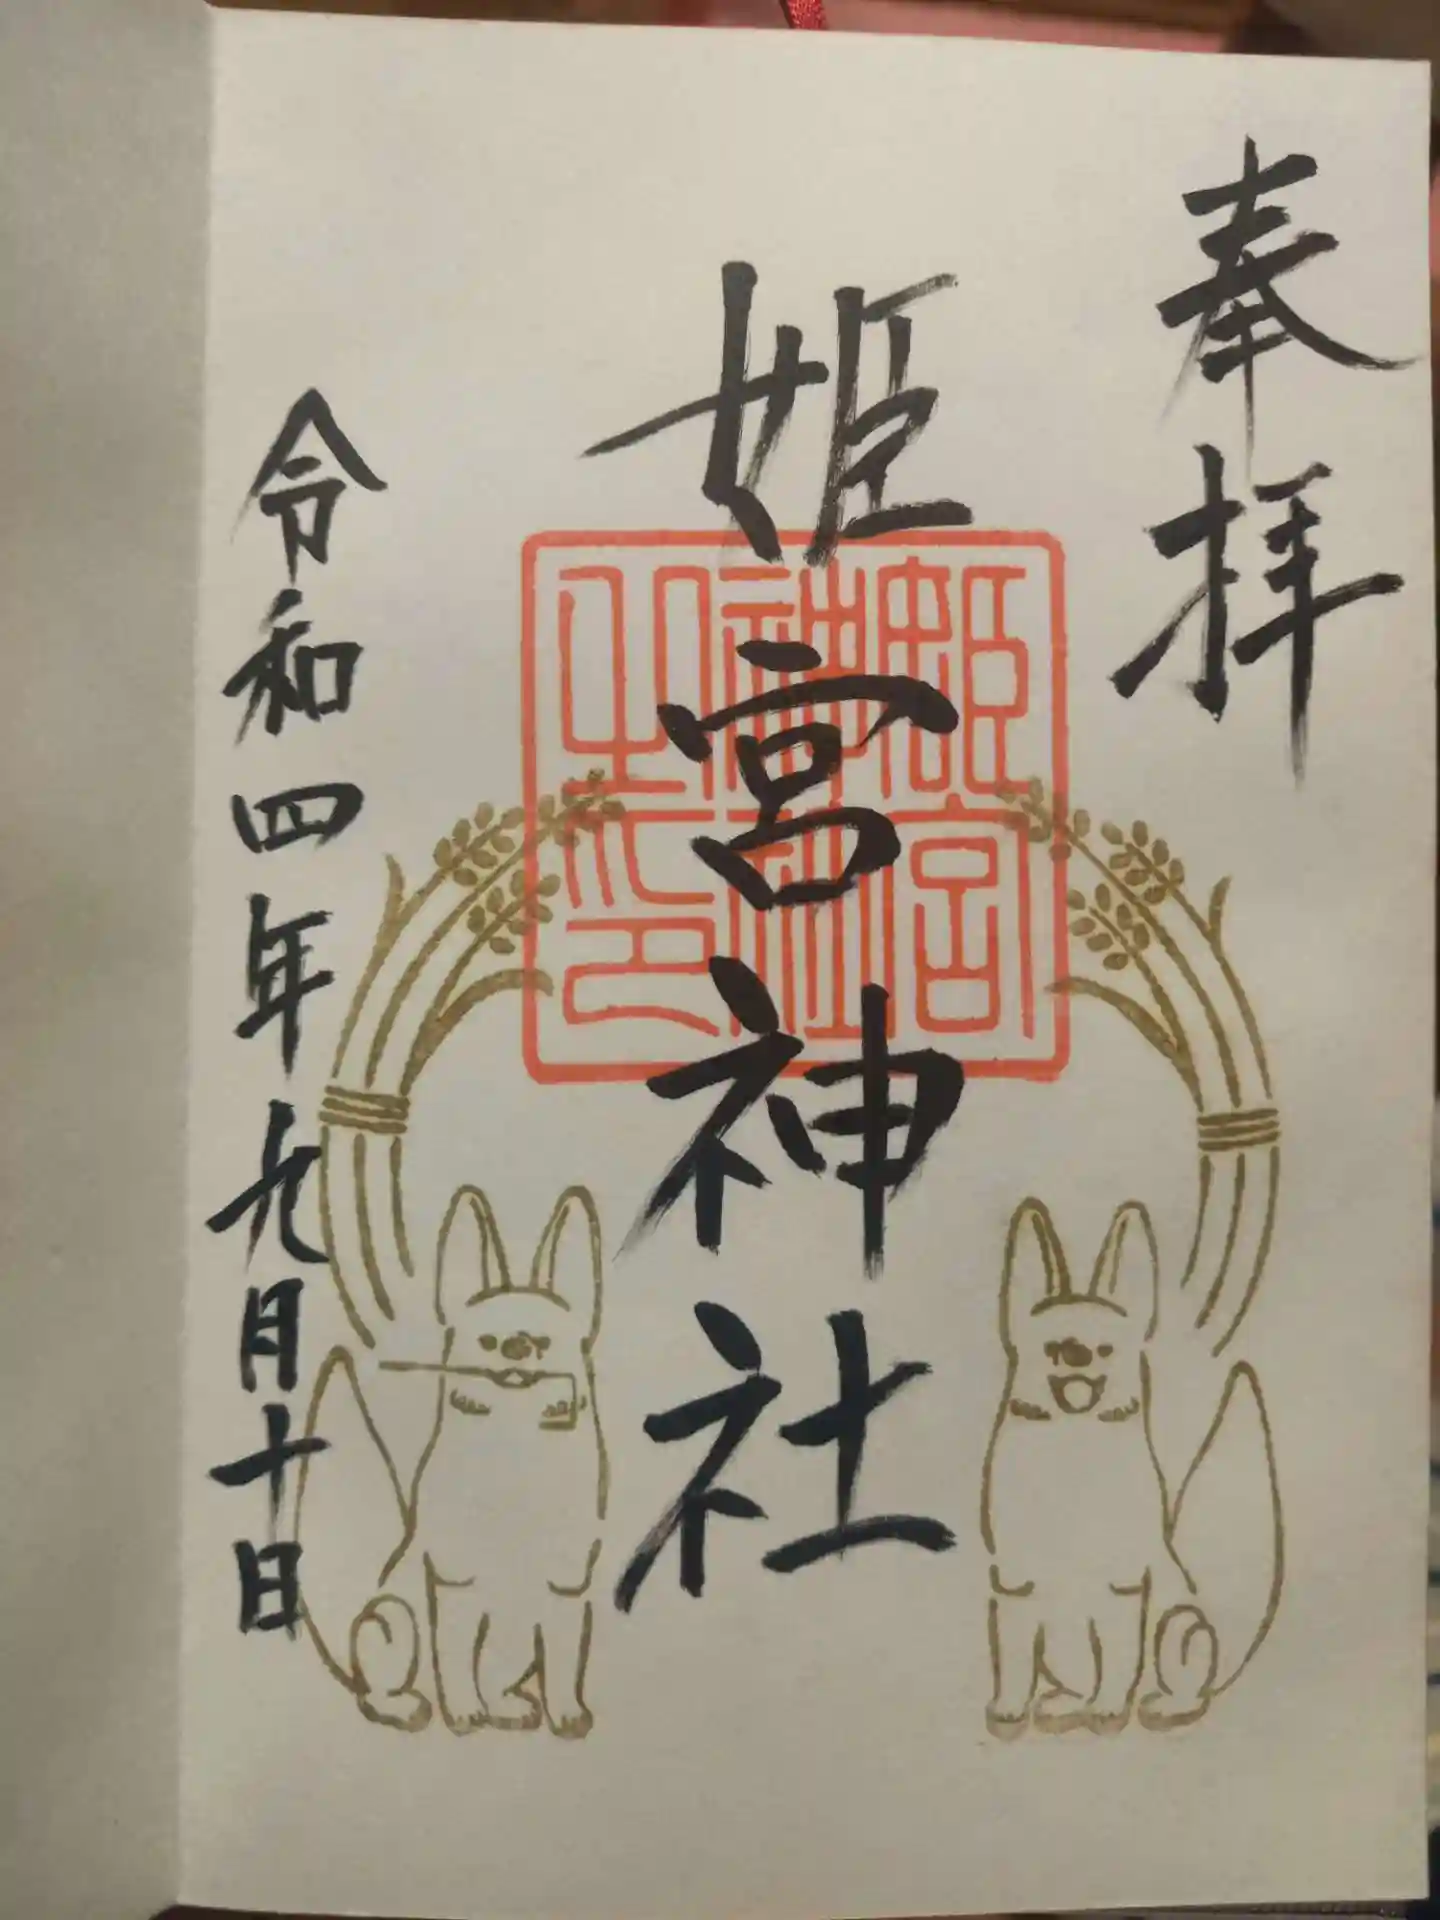 奉拝
姫宮神社
姫宮神社之印
令和四年九月十日